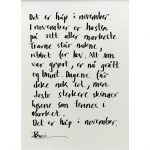 Det er håp i november.
I november er høsten
på sitt aller mørkeste.
Trærne står nakne,
ribbet for løv. Alt som
var grønt, er nå grått
og brunt. Dagene får
ikke nok lys, men
desto sterkere skinner
lysene som tennes i
mørket.
Det er håp i november.